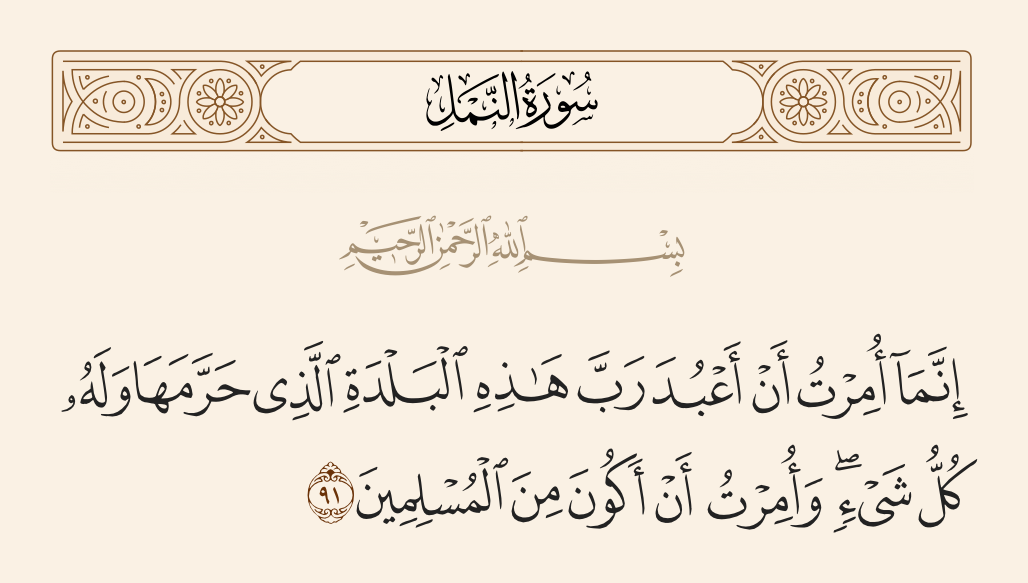 سُورَةُ النَّمْلِ
بِسْمِ ٱللَّهِ ٱلرَّحْمَٰنِ ٱلرَّحِيمِ
إِنَّمَآ أُمِرْتُ أَنْ أَعْبُدَ رَبَّ هَـٰذِهِ ٱلْبَلْدَةِ ٱلَّذِى حَرَّمَهَا وَلَهُۥ
كُلُّ شَىْءٍۢ ۖ وَأُمِرْتُ أَنْ أَكُونَ مِنَ ٱلْمُسْلِمِينَ ٩١